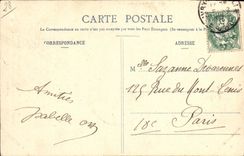 CARTE POSTALE
La Correspondance au recto n'est pas acceptée par tous les Pays Étrangers (Se renseigner à la Poste)
CORRESPONDANCE
ADRESSE
Mlle Suzanne Desvarennes
125 Rue du Mont-Cenis
Paris
18e
Amitiés
Isabelle